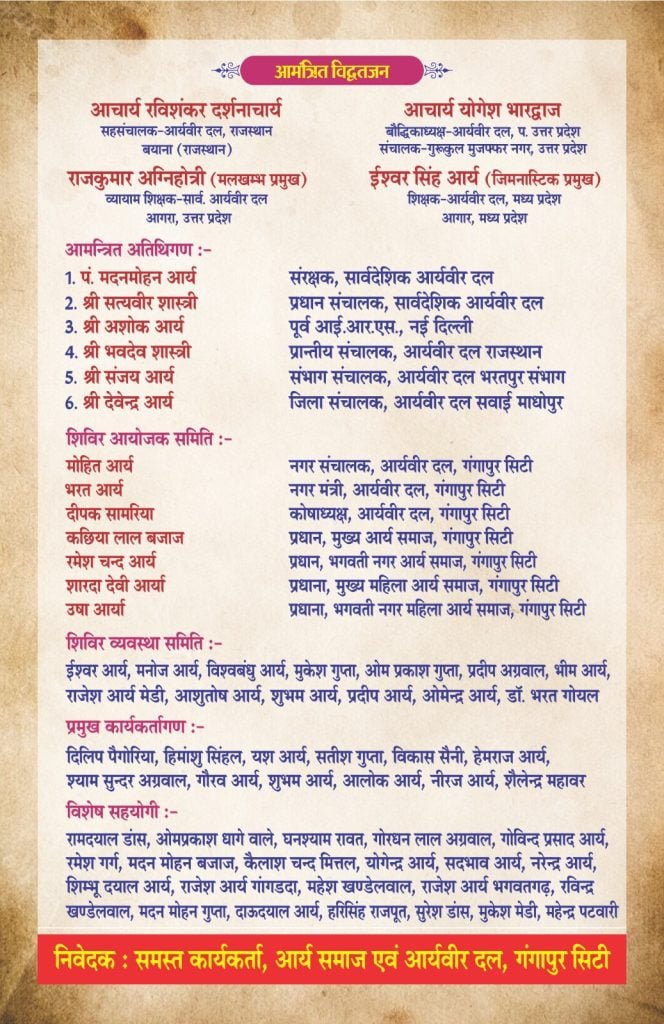 आमंत्रित विद्वतजन
आचार्य रविशंकर दर्शनाचार्य
सहसंचालक-आर्यवीर दल, राजस्थान
बयाना (राजस्थान)
आचार्य योगेश भारद्वाज
बौद्धिकाध्यक्ष-आर्यवीर दल, प. उत्तर प्रदेश
संचालक-गुरूकुल मुजफ्फर नगर, उत्तर प्रदेश
राजकुमार अग्निहोत्री (मलखम्भ प्रमुख)
व्यायाम शिक्षक-सार्व. आर्यवीर दल
आगरा, उत्तर प्रदेश
ईश्वर सिंह आर्य (जिमनास्टिक प्रमुख)
शिक्षक-आर्यवीर दल, मध्य प्रदेश
आगार, मध्य प्रदेश
आमन्त्रित अतिथिगण :-
1. पं. मदनमोहन आर्य संरक्षक, सार्वदेशिक आर्यवीर दल
2. श्री सत्यवीर शास्त्री प्रधान संचालक, सार्वदेशिक आर्यवीर दल
3. श्री अशोक आर्य पूर्व आई.आर.एस., नई दिल्ली
4. श्री भवदेव शास्त्री प्रान्तीय संचालक, आर्यवीर दल राजस्थान
5. श्री संजय आर्य संभाग संचालक, आर्यवीर दल भरतपुर संभाग
6. श्री देवेन्द्र आर्य जिला संचालक, आर्यवीर दल सवाई माधोपुर
शिविर आयोजक समिति :-
मोहित आर्य नगर संचालक, आर्यवीर दल, गंगापुर सिटी
भरत आर्य नगर मंत्री, आर्यवीर दल, गंगापुर सिटी
दीपक सामरिया कोषाध्यक्ष, आर्यवीर दल, गंगापुर सिटी
कछिया लाल बजाज प्रधान, मुख्य आर्य समाज, गंगापुर सिटी
रमेश चन्द आर्य प्रधान, भगवती नगर आर्य समाज, गंगापुर सिटी
शारदा देवी आर्या प्रधाना, मुख्य महिला आर्य समाज, गंगापुर सिटी
उषा आर्या प्रधाना, भगवती नगर महिला आर्य समाज, गंगापुर सिटी
शिविर व्यवस्था समिति :-
ईश्वर आर्य, मनोज आर्य, विश्वबंधु आर्य, मुकेश गुप्ता, ओम प्रकाश गुप्ता, प्रदीप अग्रवाल, भीम आर्य,
राजेश आर्य मेडी, आशुतोष आर्य, शुभम आर्य, प्रदीप आर्य, ओमेन्द्र आर्य, डॉ. भरत गोयल
प्रमुख कार्यकर्तागण :-
दिलिप पैगोरिया, हिमांशु सिंहल, यश आर्य, सतीश गुप्ता, विकास सैनी, हेमराज आर्य,
श्याम सुन्दर अग्रवाल, गौरव आर्य, शुभम आर्य, आलोक आर्य, नीरज आर्य, शैलेन्द्र महावर
विशेष सहयोगी :-
रामदयाल डांस, ओमप्रकाश धागे वाले, घनश्याम रावत, गोरधन लाल अग्रवाल, गोविन्द प्रसाद आर्य,
रमेश गर्ग, मदन मोहन बजाज, कैलाश चन्द मित्तल, योगेन्द्र आर्य, सदभाव आर्य, नरेन्द्र आर्य,
शिम्भू दयाल आर्य, राजेश आर्य गांगडदा, महेश खण्डेलवाल, राजेश आर्य भगवतगढ़, रविन्द्र
खण्डेलवाल, मदन मोहन गुप्ता, दाऊदयाल आर्य, हरिसिंह राजपूत, सुरेश डांस, मुकेश मेडी, महेन्द्र पटवारी
निवेदक : समस्त कार्यकर्ता, आर्य समाज एवं आर्यवीर दल, गंगापुर सिटी